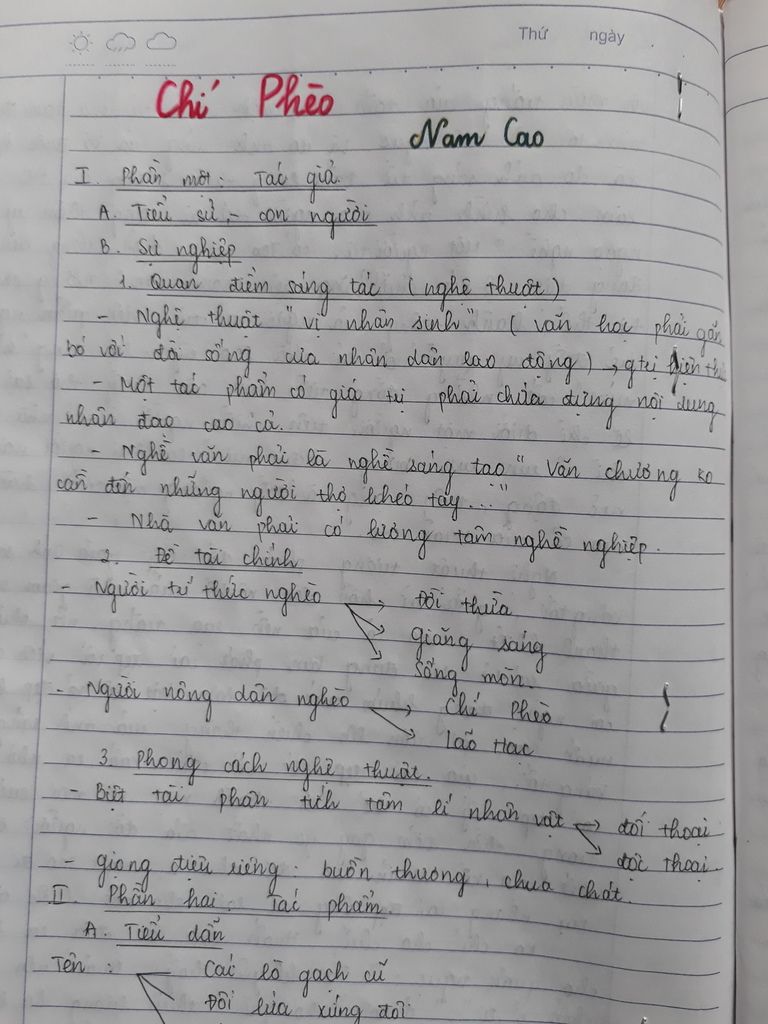 Thứ ngày
Chí Phèo
Nam Cao
I. Phần một: Tác giả.
A. Tiểu sử, - con người
B. Sự nghiệp
1. Quan điểm sáng tác (nghệ thuật)
- Nghệ thuật "vị nhân sinh" (văn học phải gắn
bó với đời sống của nhân dân lao động) → gtrị hiện th
- Một tác phẩm có giá trị phải chứa đựng nội dung
nhân đạo cao cả.
- Nghề văn phải là nghề sáng tạo "Văn chương ko
cần đến những người thợ khéo tay..."
- Nhà văn phải có lương tâm nghề nghiệp.
2. Đề tài chính
- Người trí thức nghèo → Đời thừa
Giăng sáng
Sống mòn.
- Người nông dân nghèo → Chí Phèo
Lão Hạc
3. Phong cách nghệ thuật.
- Biệt tài phân tích tâm lí nhân vật → đối thoại
độc thoại.
- giọng điệu riêng: buồn thương, chua chát.
II. Phần hai. Tác phẩm.
A. Tiểu dẫn
Tên: Cái lò gạch cũ
Đôi lứa xứng đôi